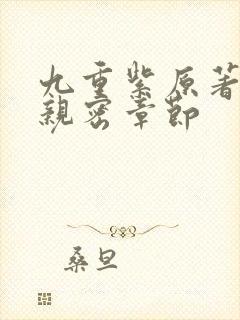 九重紫原著
親密章節
桑旦